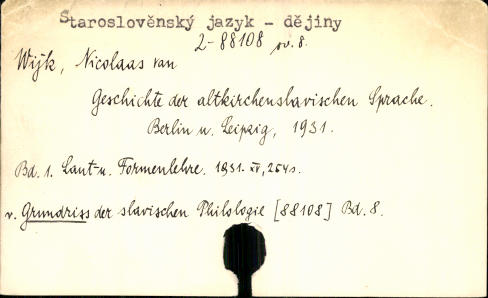 Staroslověnský jazyk - dějiny
2-88108 sv. 8.
Wijk, Nicolaas van
Geschichte der altkirchenslavischen Sprache.
Berlin u. Leipzig, 1931.
Bd. 1. Laut- u. Formenlehre. 1931. XV, 254 s.
v. Grundriss der slavischen Philologie [88108] Bd. 8.